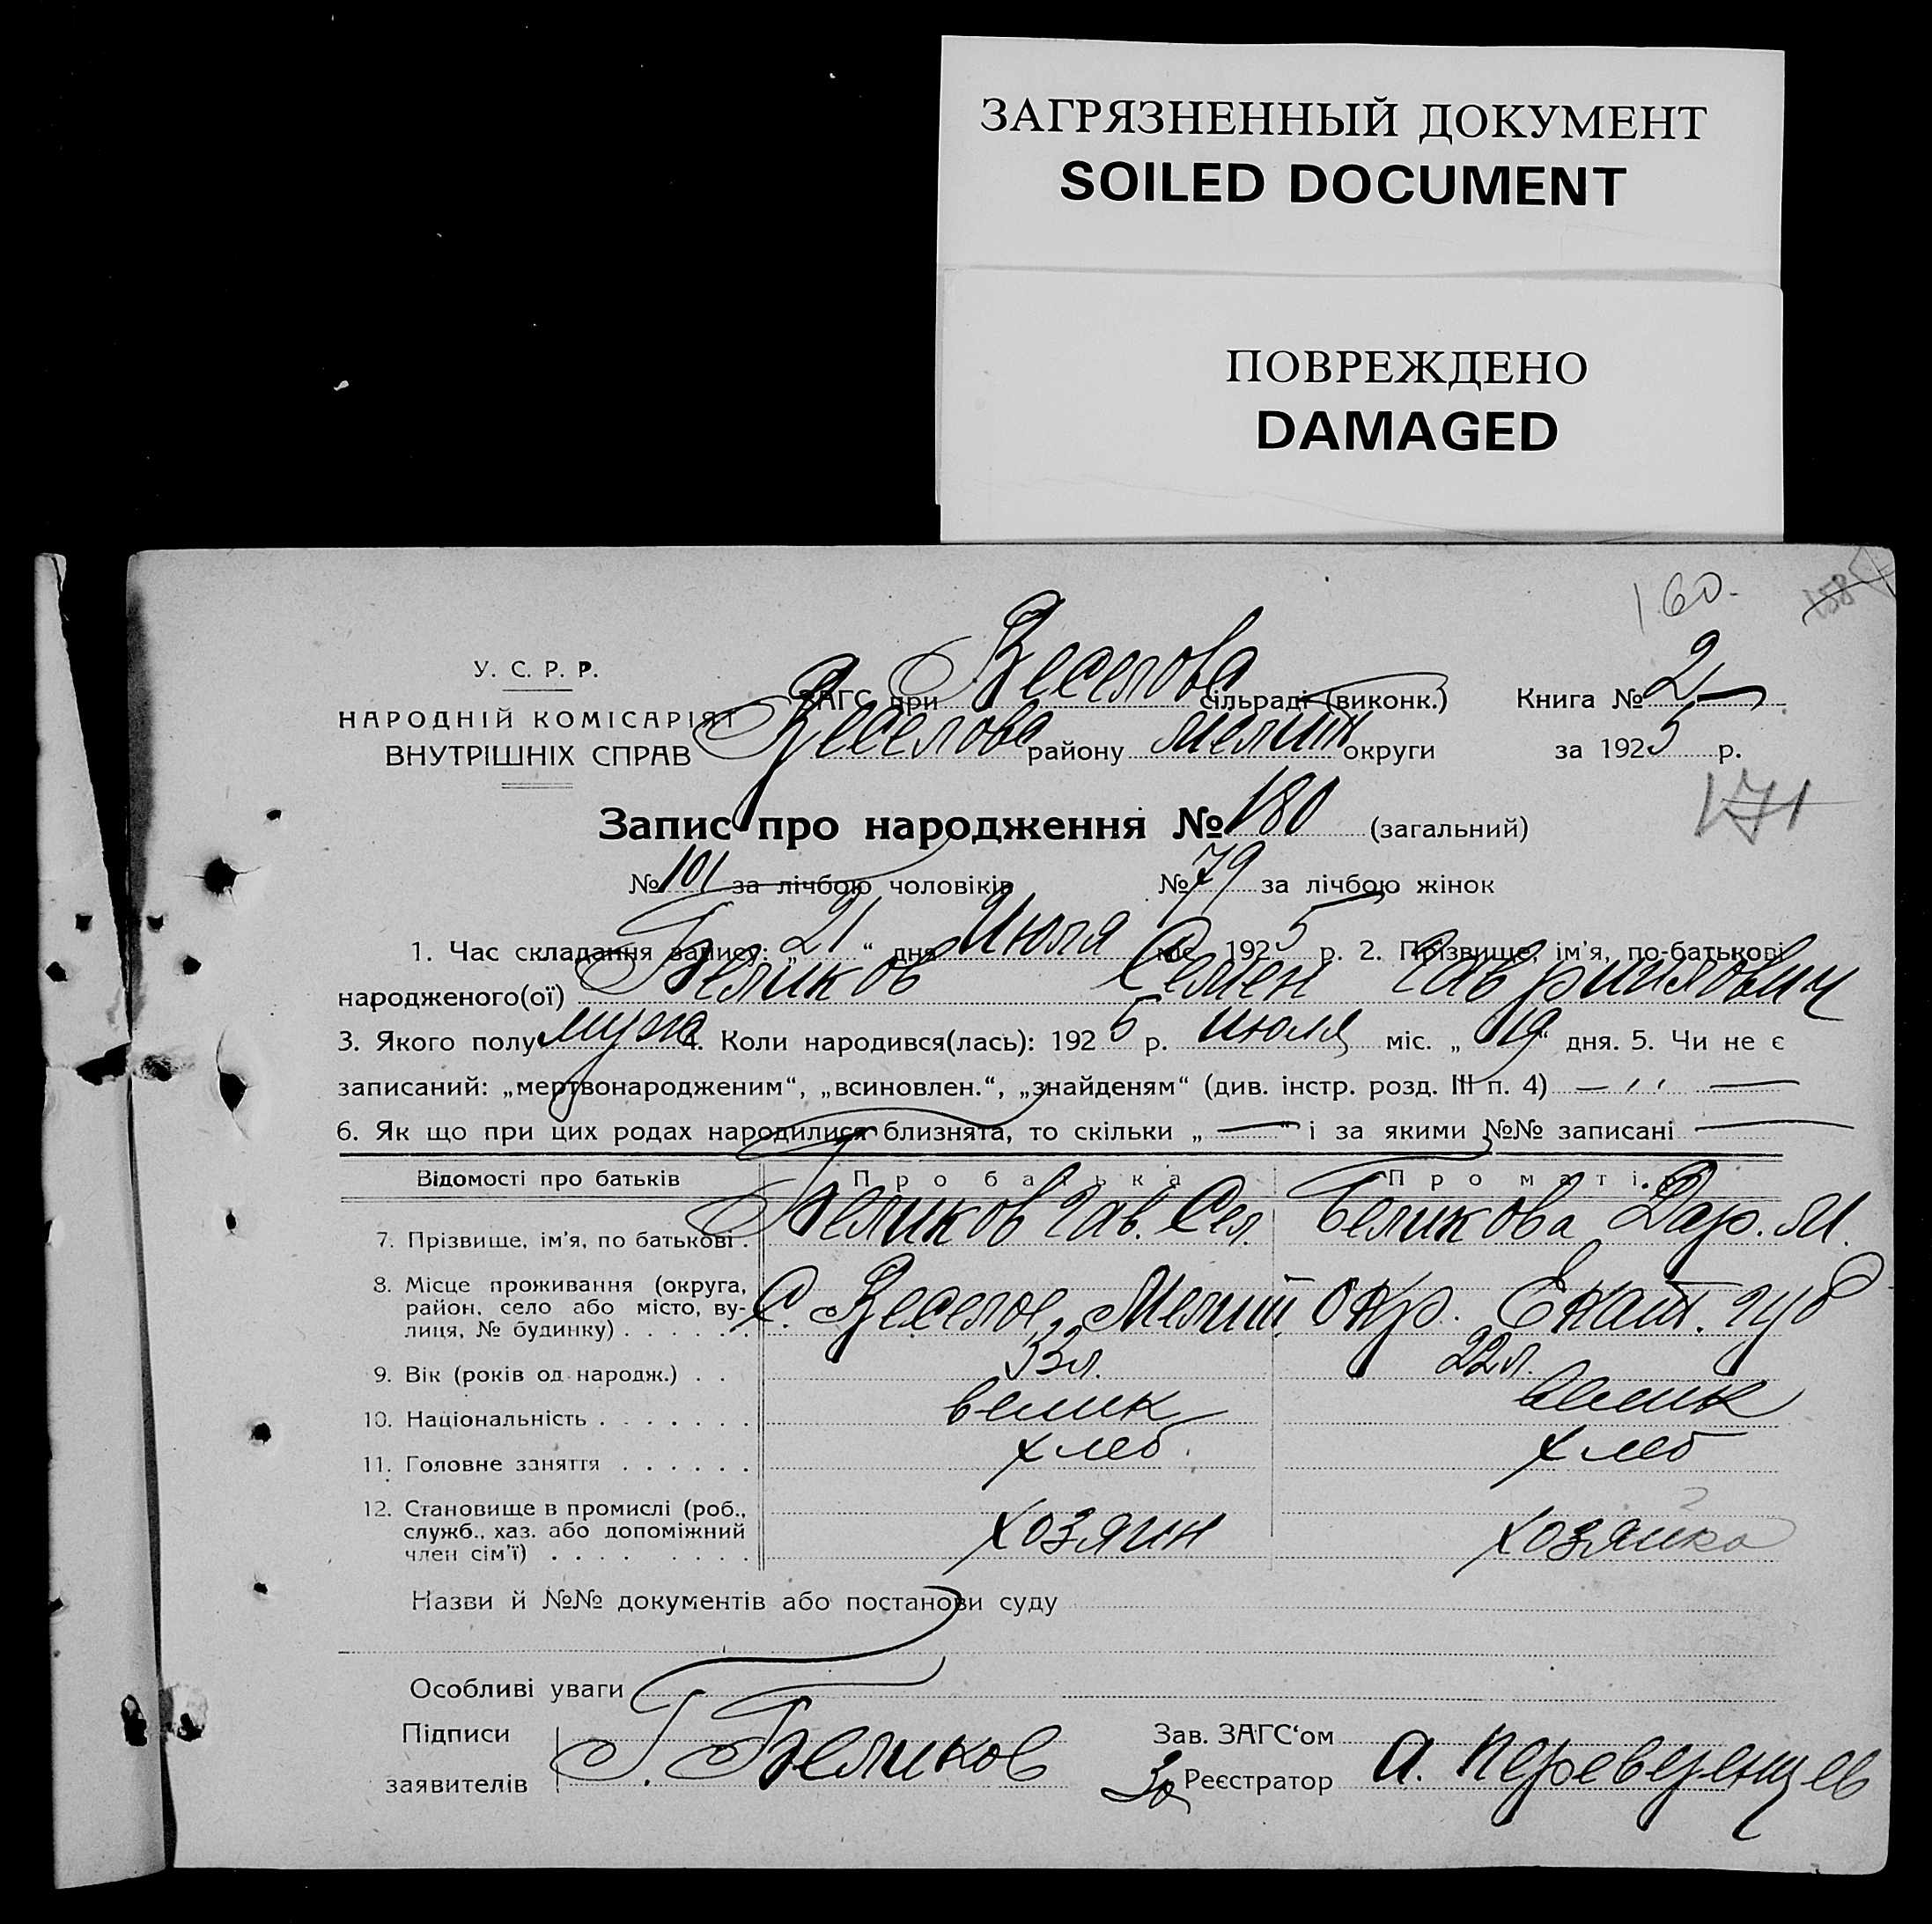 ЗАГРЯЗНЕННЫЙ ДОКУМЕНТ
SOILED DOCUMENT
ПОВРЕЖДЕНО
DAMAGED
160. 158
У. С. Р. Р.
НАРОДНІЙ КОМІСАРІЯТ
ВНУТРІШНІХ СПРАВ
ЗАГС при Веселова сільраді (виконк.) Книга № 2
Веселова району мелит округи за 1925 р.
171
Запис про народження № 180 (загальний)
№ 101 за лічбою чоловіків № 79 за лічбою жінок
1. Час складання запису: „21“ дня Июля міс. 1925 р. 2. Прізвище, ім’я, по-батькові
народженого(ої) Беликов Семен Гавриилович
3. Якого полу муж 4. Коли народився(лась): 1925 р. июля міс. „19“ дня. 5. Чи не є
записаний: „мертвонародженим“, „всиновлен.“, „знайденям“ (див. інстр. розд. III п. 4) — ,, —
6. Як що при цих родах народилися близнята, то скільки „—“ і за якими №№ записані —
Відомості про батьків Про батька Про матір
7. Прізвище, ім’я, по батькові . Беликов Гав. Сел. Беликова Дар. М.
8. Місце проживання (округа,
район, село або місто, ву-
лиця, № будинку) . . . . . . С. Веселое, Мелит. окр. Екат. губ
9. Вік (років од народж.) . . 33 л. 22 л.
10. Національність . . . . . . . велик велик
11. Головне заняття . . . . . . хлеб. хлеб
12. Становище в промислі (роб.,
служб., хаз. або допоміжний
член сім’ї) . . . . . . . . . хозяин хозяйка
Назви й №№ документів або постанови суду
Особливі уваги
Підписи
заявителів Г. Беликов
Зав. ЗАГС‘ом
За Реєстратор А. Переверенцев